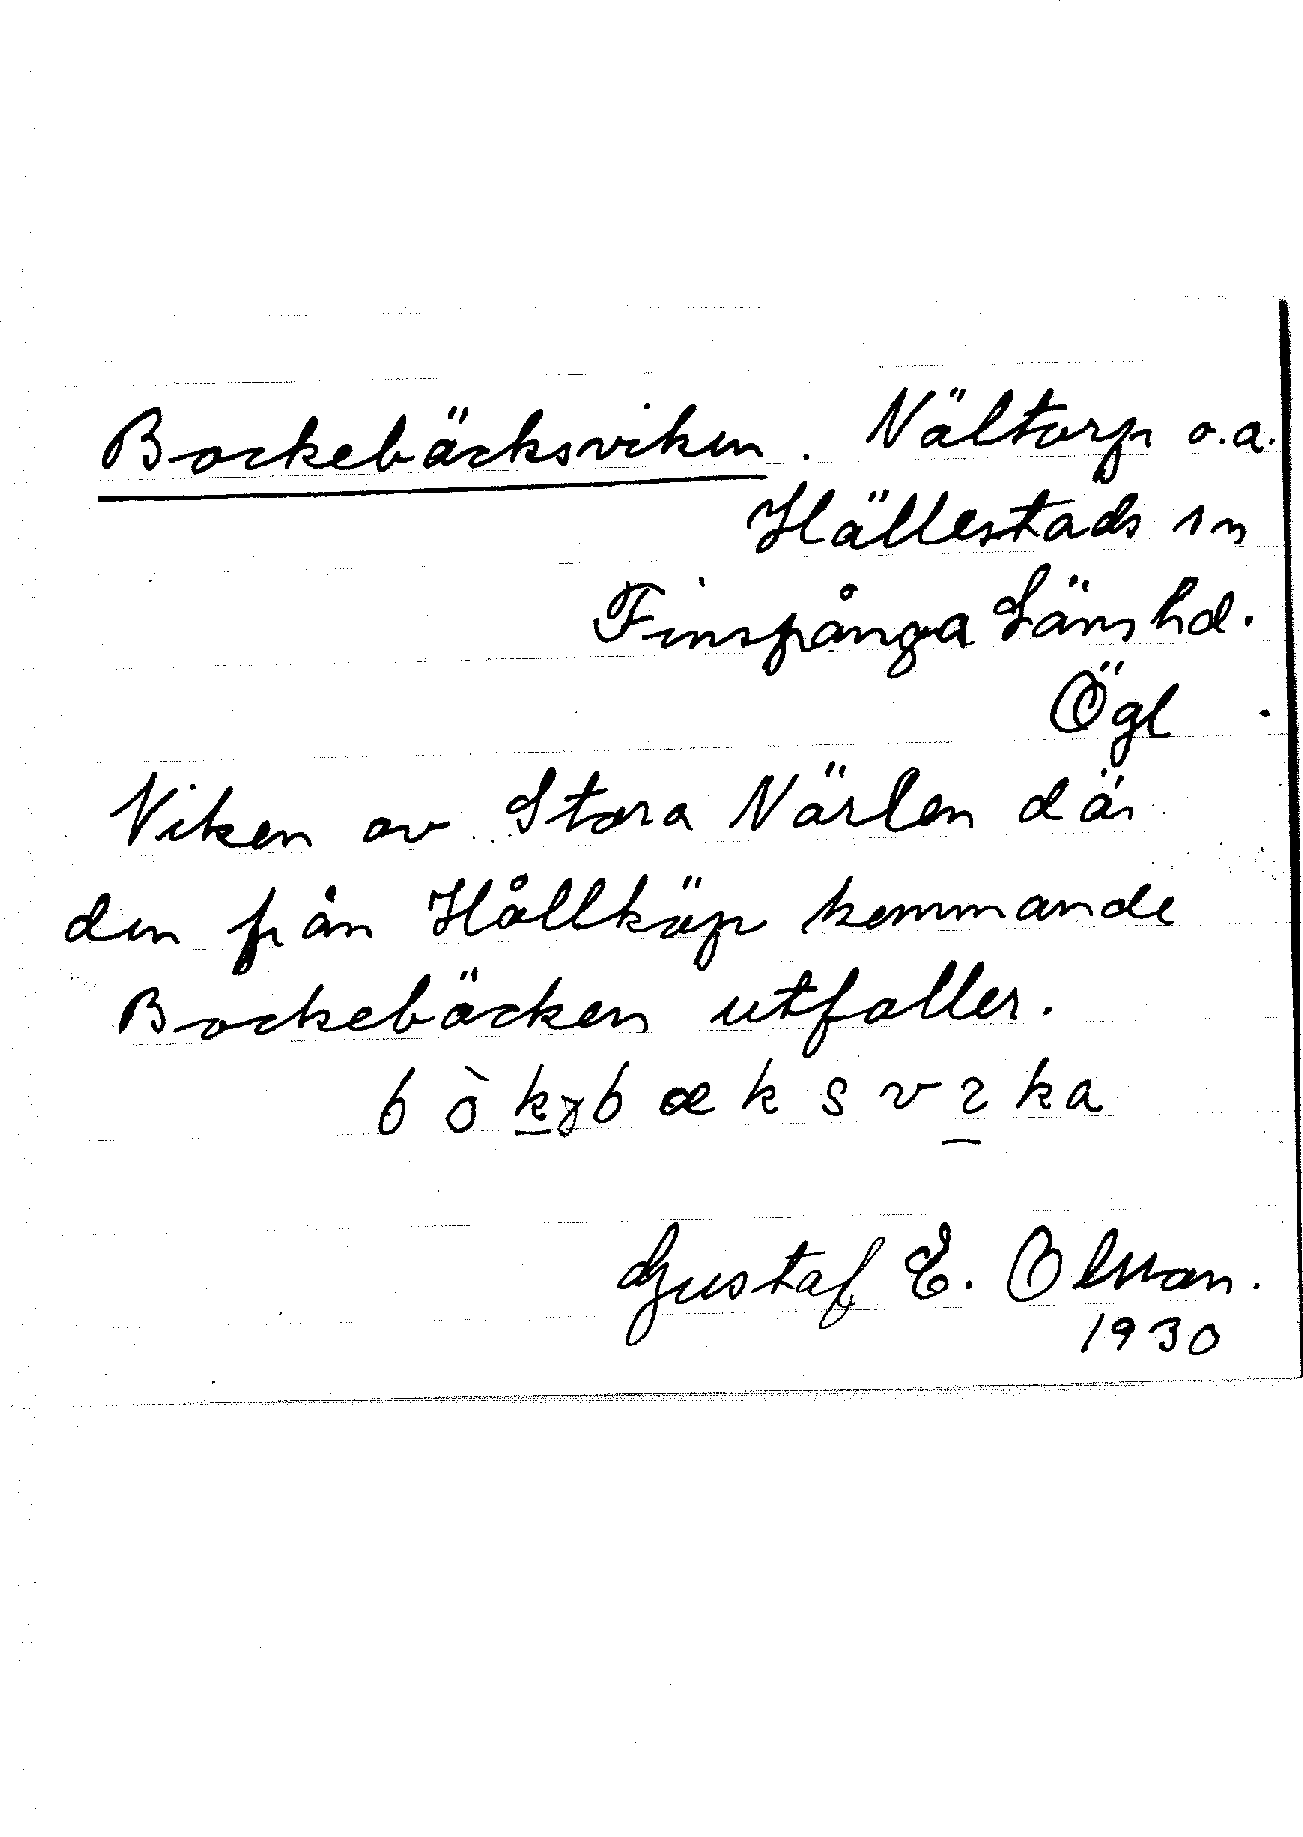 Bockebäcksviken. Nältorp o.a.
Hällestads sn
Finspånga Läns hd.
Ögl
Viken av Stora Närlen där
den från Hållköp kommande
Bockebäcken utfaller.
bòkɣbæksvɩka
Gustaf E. Olsson.
1930